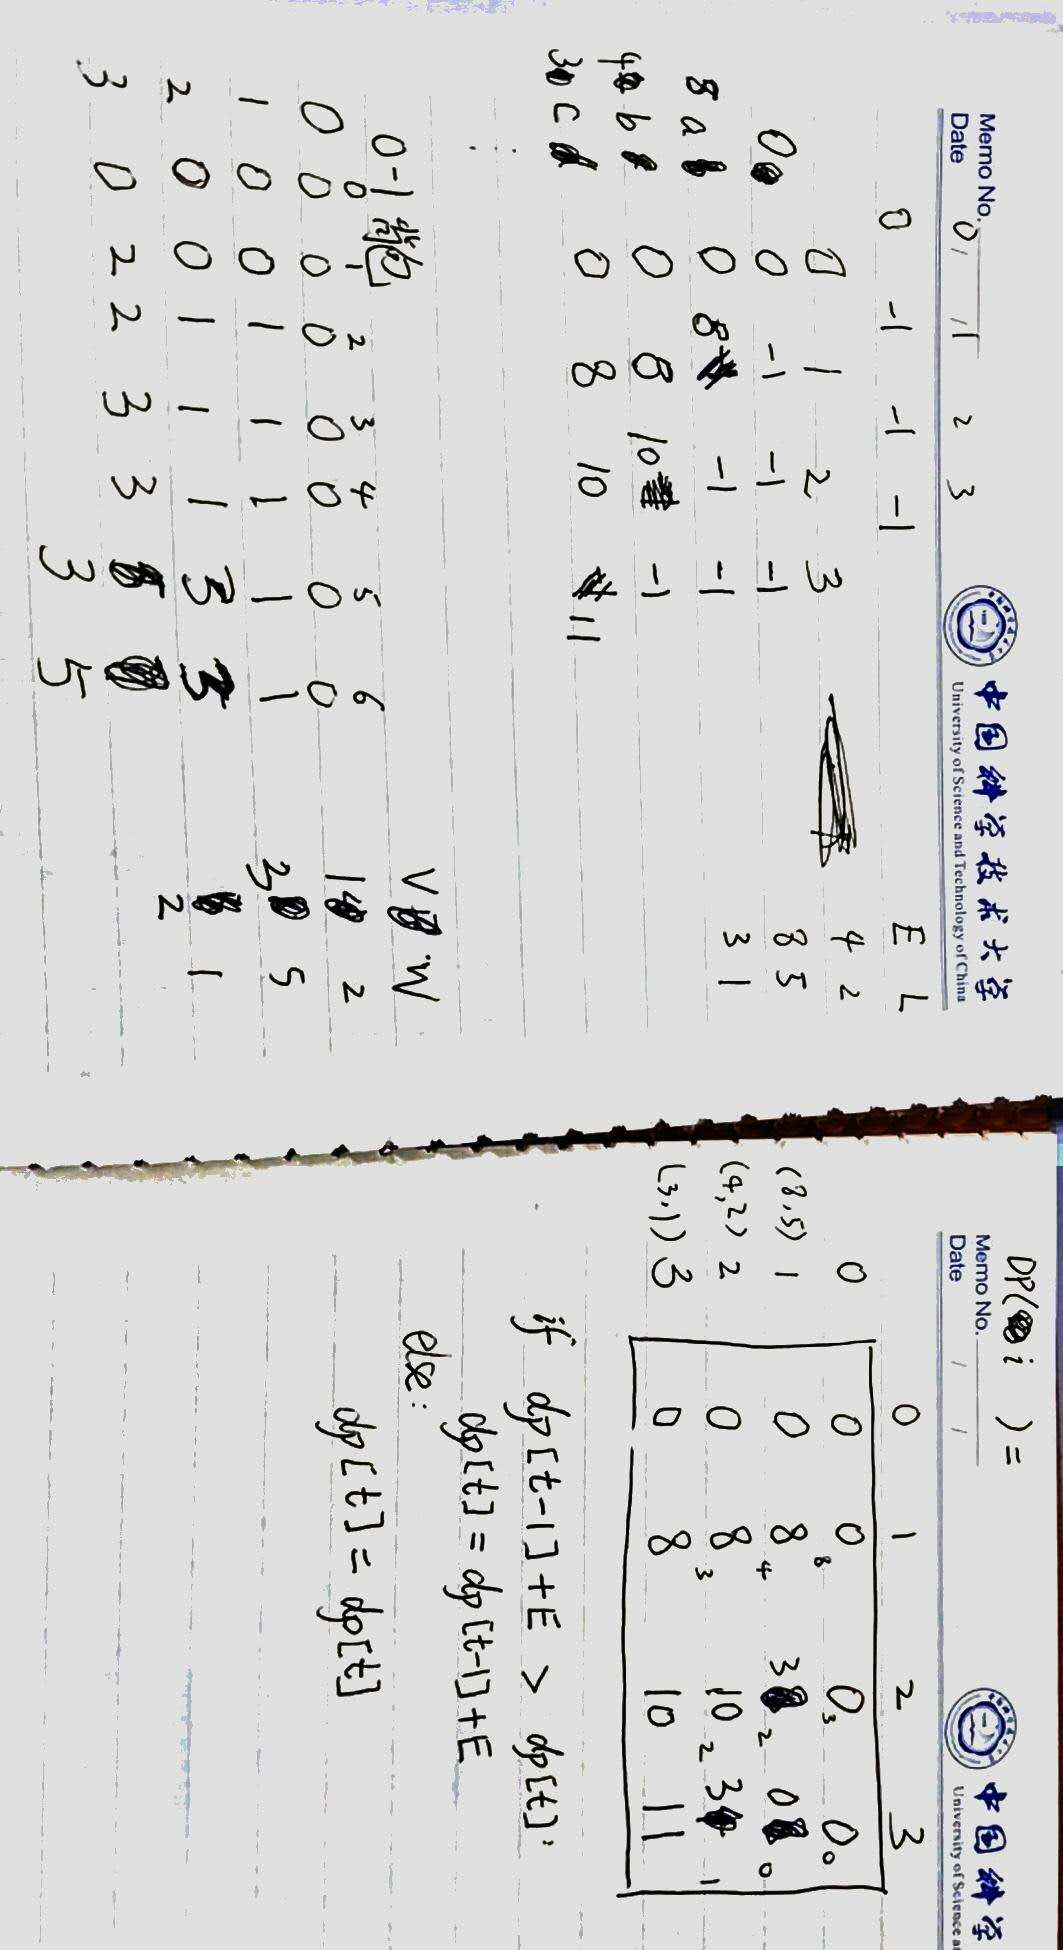 Memo No.
Date / /
中国科学技术大学
University of Science and Technology of China
0 1 2 3
0 -1 -1 -1
E L
0 1 2 3
4 2
0 0 -1 -1 -1
8 5
8 a 0 8 -1 -1
3 1
4 b 0 8 10 -1
3 c 0 8 10 11
...
0-1背包
V W
0 1 2 3 4 5 6
0 0 0 0 0 0 0 0
1 2
1 0 0 1 1 1 1 1
3 5
2 0 0 1 1 1 3 3
2 1
3 0 2 2 3 3 3 5
DP( i ) =
Memo No.
Date / /
中国科学
University of Science a
0 1 2 3
0 0 0 0 0
8 3 0
(8,5) 1 0 8 3 0
4 2 0
(4,2) 2 0 8 10 3
3 2 1
(3,1) 3 0 8 10 11
if dp[t-1]+E > dp[t]:
dp[t] = dp[t-1]+E
else:
dp[t] = dp[t]